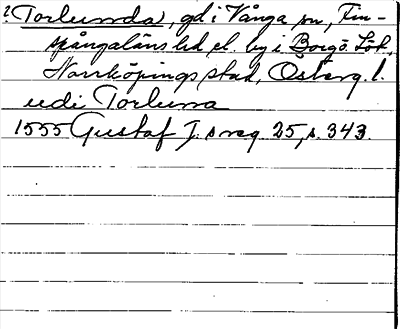 ? Torlunda, gd i Vånga sn, Fin-
spångaläns hd, el. by i Borgs Löt,
Norrköpings stad, Österg. l.
udi Torlunna
1555 Gustaf I:s reg. 25, s. 343.